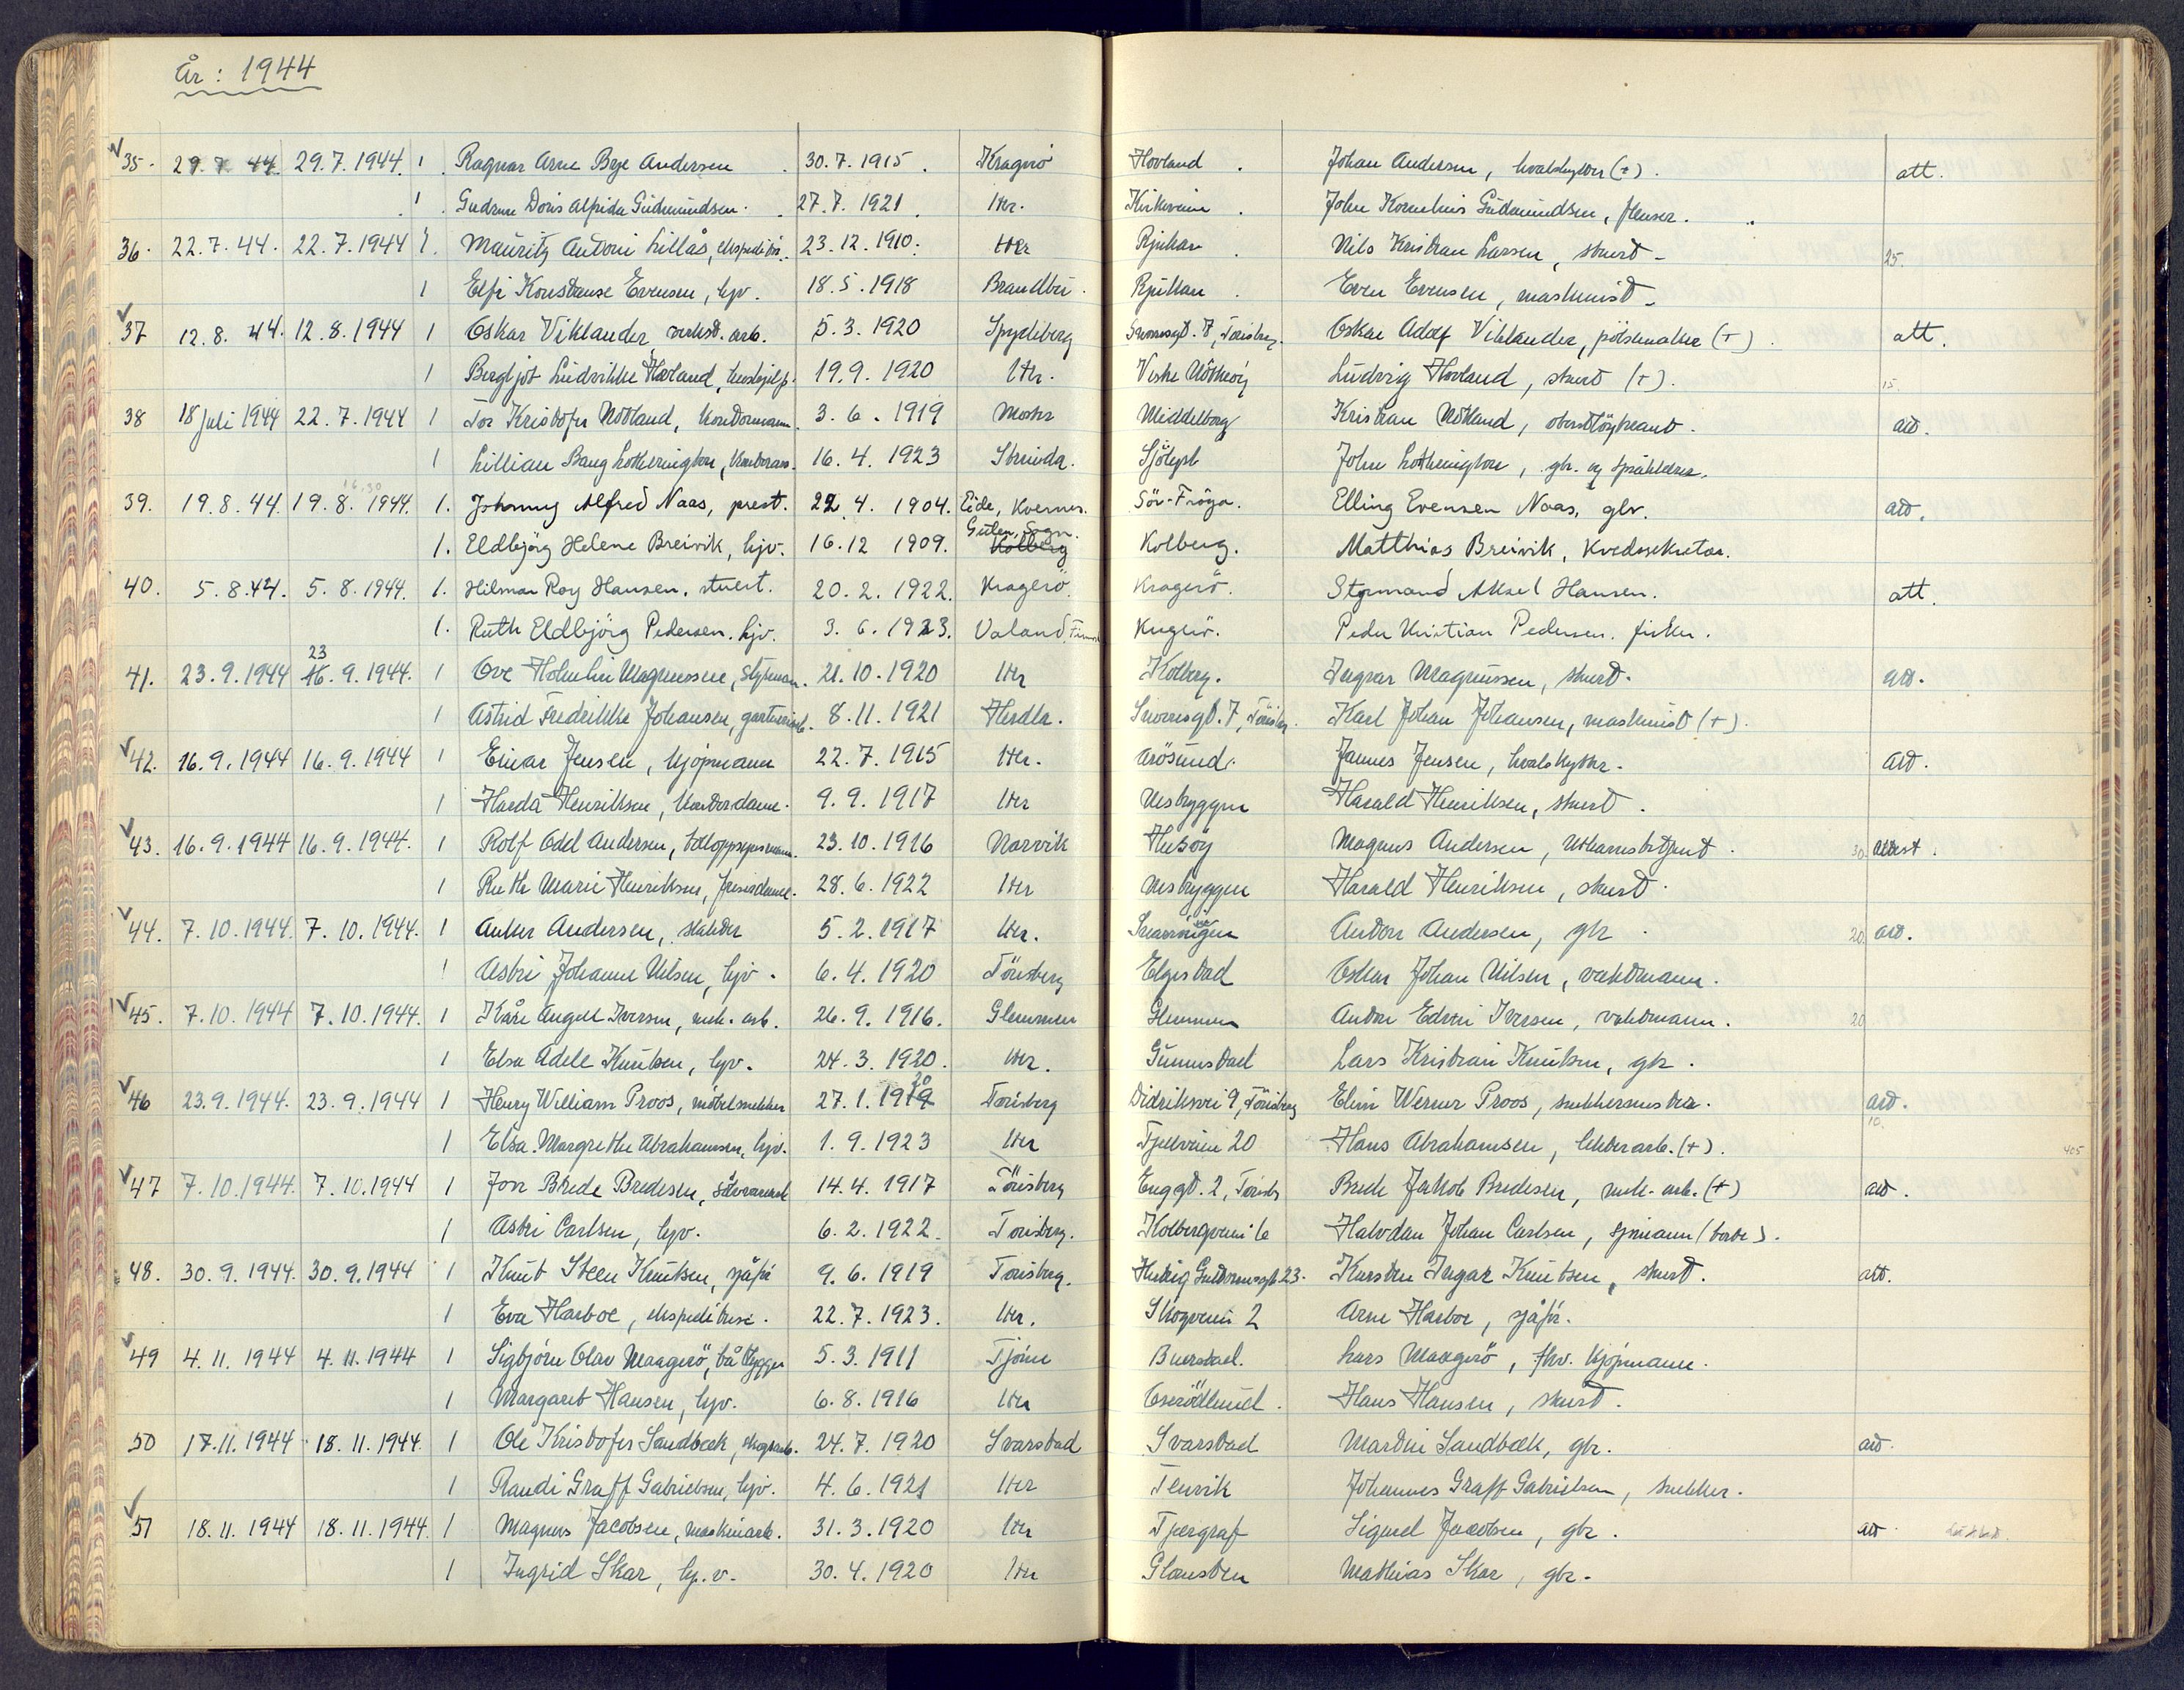 År: 1944
35. 29.7 44. 29.7.1944. 1. Ragnar Arne Brye Andersen 30.7.1915. Kragerö Hovland. Johan Andersen, hvalskytter (+). att.
1. Gudrun Doris Alfrida Gudmundsen. 27.7.1921. Her. John Kornelius Gudmundsen,
36. 22.7.44. 22.7.1944 1. Mauritz Antoni Lillås, ekspeditör. 23.12.1910. Her Rjukan. Nils Kristian Larsen, stuert. 25.
1 Konstanse Evensen, hjv. 18.5.1918 Brandbu. Rjukan. Even Evensen, maskinist.
37 12.8. 44. 12.8.1944 1 Oskar Viklander, verkst. arb. 5.3.1920 Spydeberg 7, Tönsberg. Oskar Adolf Viklander, pölsemaker (+). att.
1 Bergljot Ludvikke Hovland, 19.9.1920 Her. Vestre Ludvig Hovland, stuert (+). 15.
38 18 juli 1944 22.7.1944 1 Tor Kristofer Nötland, kontormann. 3.6.1919 Middelborg Kristian Nötland, oberstlöytnant. att.
1 Lillian Bang Lotherington, 16.4.1923 Strinda. Sjölyst John Lotherington, gbr. og
39. 19.8.44. 16.30 19.8.1944. 1. Johnny Alfred Naas, prest. 22.4.1904. Eide, Kvernes. Sör-Fröya. Elling Evensen Naas, gbr. att.
1. Eldbjörg Helene Breivik, hjv. 16.12 1909. Gulen, Sogn. Kolberg Kolberg. Matthias Breivik, Kretssekretær.
40. 5.8.44. 5.8.1944. 1. Hilmar Roy Hansen, stuert. 20.2.1922. Kragerö. Kragerö. Styrmand Aksel Hansen. att.
1. Ruth Eldbjörg Pedersen. hjv. 3.6.1923. Kragerö. Peder Kristian Pedersen. fisker.
41. 23.9.1944 23 16.9.1944. 1 Ove Magnussen, styrmann. 21.10.1920 Her Kolberg. Ingvar Magnussen, stuert. att.
1 Astrid Fredrikke Johansen, 8.11.1921 Herdla. 7, Karl Johan Johansen, maskinist (+).
42. 16.9.1944 16.9.1944 1 Einar Jensen, kjöpmann 22.7.1915 Her. Arösund. Jensen, hvalskytter. att.
1 Henriksen, kontordame. 9.9.1917 Her Nesbryggen Harald Henriksen, stuert.
43. 16.9.1944 16.9.1944. 1 Rolf Odd Andersen, tolloppsynsmann. 23.10.1916 Narvik Husöy Magnus Andersen, 30.
1 Ruth Marie Henriksen, frisördame. 28.6.1922 Her Nesbryggen Harald Henriksen, stuert.
44. 7.10.1944. 7.10.1944. 1 Anker Andersen, slakter 5.2.1917 Her. Anton Andersen, gbr. 20. att.
1 Astri Johanne Nilsen, hjv. 6.4.1920 Tönsberg Elgestad Oskar Johan Nilsen, vaktmann.
45. 7.10.1944 7.10.1944. 1 Kåre Angell Iversen, mek. arb. 26.9.1916. Glemmen Glemmen Anton Edvin Iversen, vaktmann. 20
1 Elsa Adele Knutsen, hjv. 24.3.1920. Her. Gunnestad Lars Kristian Knutsen, gbr.
46 23.9.1944. 23.9.1944 1 Henry William Proos, möbelsnekker 27.1.1919 20 Tönsberg Didriksvei 9, Tönsberg Elim Werner Proos, snekkermester. att. 10.
1 Elsa Margrethe Abrahamsen, hjv. 1.9.1923 Her 20 Hans Abrahamsen, (+). 405
47 7.10.1944. 7.10.1944 1 Jon Brede Bredesen, 14.4.1917 Tönsberg Enggt. 2, Tönsb Brede Jakob Bredesen, mek. arb. (+) att.
1 Astri Carlsen, hjv. 6.2.1922. Tönsberg. Kolbergveien 6 Halvdan Johan Carlsen, sjömann
48. 30.9.1944. 30.9.1944 1 Knut Steen Knutsen, sjåför 9.6.1919 Tönsberg. 23. Karsten Ingar Knutsen, stuert. att.
1 Eva Harboe, ekspeditrise. 22.7.1923. Her. Skogveien 2 Arne Harboe, sjåför.
49 4.11.1944 4.11.1944 1 Sigbjörn Olav Maagerö, båtbygger 5.3.1911 Tjöme Buerstad. Lars Maagerö, fhv. kjöpmann.
1 Margaret Hansen, hjv. 6.8.1916 Her Oserödlund. Hans Hansen, stuert.
50 17.11.1944 18.11.1944. 1 Ole Kristofer Sandbæk, skogsarb. 24.7.1920 Svarstad Svarstad Martin Sandbæk, gbr. att.
1 Randi Graff Gabrielsen, hjv. 4.6.1921 Her Tenvik Johannes Graff Gabrielsen, snekker.
51 18.11.1944 18.11.1944. 1 Magnus Jacobsen, maskinarb. 31.3.1920 Her Sigurd Jacobsen, gbr. att
1 Ingrid Skar, hj.v. 30.4.1920 Her Mathias Skar, gbr.